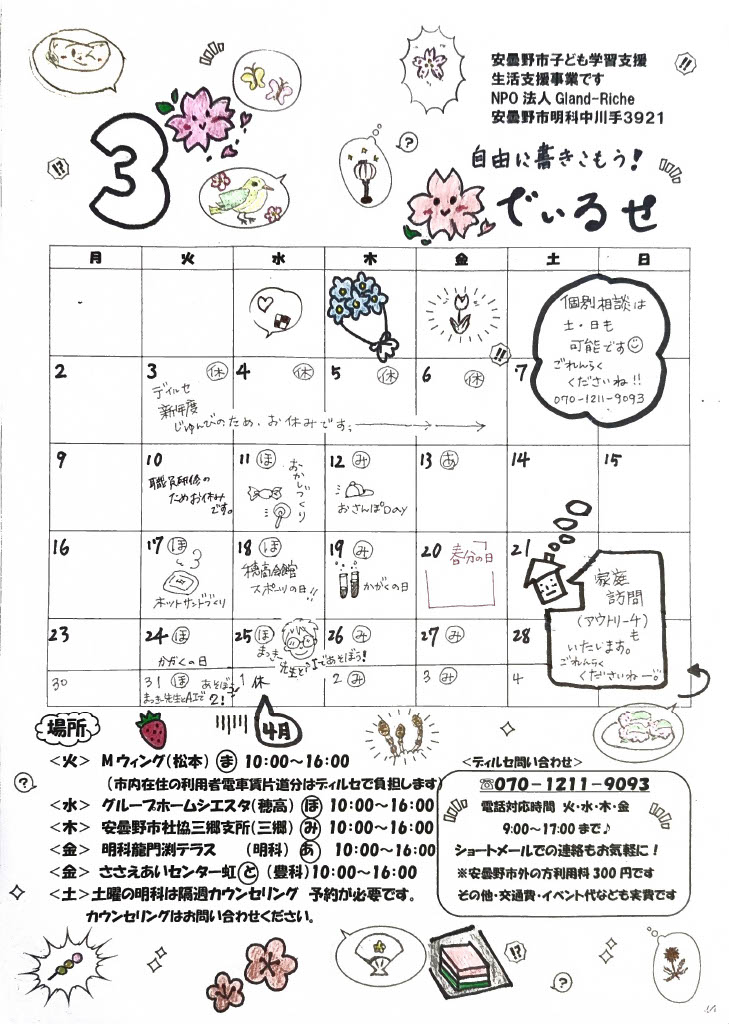 安曇野市子ども学習支援
生活支援事業です
NPO 法人 Gland-Riche
安曇野市明科中川手3921
3
自由に書きこもう!
でぃるせ
月 火 水 木 金 土 日
個別相談は
土・日も
可能です
ごれんらく
くださいね!!
070-1211-9093
2 3 休 4 休 5 休 6 休 7
ディルセ
新年度
じゅんびのため、お休みです。
9 10 11 ほ 12 み 13 あ 14 15
職員研修の
ためお休み
です。
おかしづくり
おさんぽDay
16 17 ほ 18 ほ 19 み 20 春分の日 21
ホットサンドづくり
穂高会館
スポーツの日!!
かがくの日
家庭
訪問
(アウトリーチ)
も
いたします。
ごれんらく
くださいねー。
23 24 ほ 25 ほ 26 み 27 み 28
かがくの日
まつき先生とAIであそぼう!
30 31 ほ 1 休 2 み 3 み 4
まつき先生とAIで あそぼう!2!
4月
場所
<火> Mウィング(松本) ま 10:00~16:00
(市内在住の利用者電車賃片道分はディルセで負担します)
<水> グループホームシエスタ(穂高) ほ 10:00~16:00
<木> 安曇野市社協三郷支所(三郷) み 10:00~16:00
<金> 明科龍門渕テラス (明科) あ 10:00~16:00
<金> ささえあいセンター虹 と (豊科)10:00~16:00
<土> 土曜の明科は隔週カウンセリング 予約が必要です。
カウンセリングはお問い合わせください。
<ディルセ問い合わせ>
☎070-1211-9093
電話対応時間 火・水・木・金
9:00~17:00 まで♪
ショートメールでの連絡もお気軽に!
※安曇野市外の方利用料 300 円です
その他・交通費・イベント代なども実費です